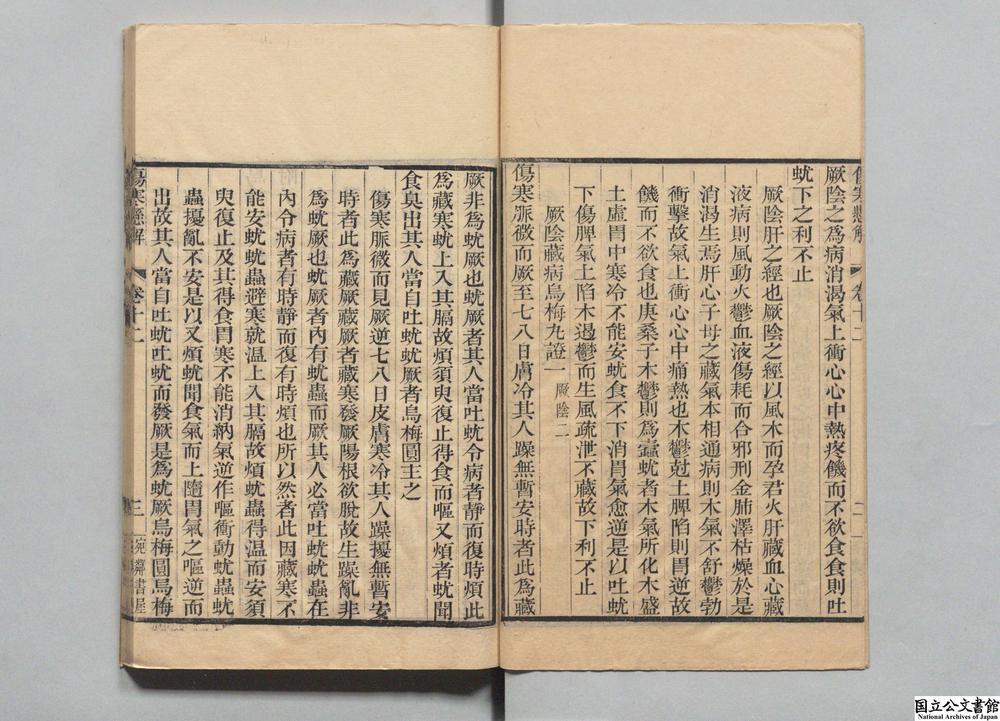 傷寒懸解
卷十二
二
厥陰之爲病消渴氣上衝心心中熱疼饑而不欲食食則吐
蚘下之利不止
厥陰肝之經也厥陰之經以風木而孕君火肝藏血心藏
液病則風動火鬱血液傷耗而合邪刑金肺澤枯燥於是
消渴生焉肝心子母之藏氣本相通病則木氣不舒鬱勃
衝擊故氣上衝心心中痛熱也木鬱尅土脾陷則胃逆故
饑而不欲食也庚桑子木鬱則爲蠹蚘者木氣所化木盛
土虛胃中寒冷不能安蚘食不下消胃氣愈逆是以吐蚘
下傷脾氣上陷木遏鬱而生風疏泄不藏故下利不止
厥陰藏病烏梅丸證一 厥陰二
傷寒脈微而厥至七八日膚冷其人躁無暫安時者此爲藏
厥非爲蚘厥也蚘厥者其人當吐蚘令病者靜而復時煩此
爲藏寒蚘上入其膈故煩須臾復止得食而嘔又煩者蚘聞
食臭出其人當自吐蚘蚘厥者烏梅圓主之
傷寒脈微而見厥逆七八日皮膚寒冷其人躁擾無暫安
時者此爲藏厥藏厥者藏寒發厥陽根欲脫故生躁亂非
爲蚘厥也蚘厥者內有蚘蟲而厥其人必當吐蚘蚘在
內令病者有時靜而復有時煩也所以然者此因藏寒不
能安蚘蚘蟲避寒就溫上入其膈故煩蚘蟲得溫而安須
臾復止及其得食胃寒不能消納氣逆作嘔衝動蚘蟲蚘
蟲擾亂不安是以又煩蚘聞食氣而上隨胃氣之嘔逆而
出故其人當自吐蚘吐蚘而發厥是爲蚘厥烏梅圓烏梅
傷寒懸解
卷十二
三
宛鄰書屋
国立公文書館
National Archives of Japan